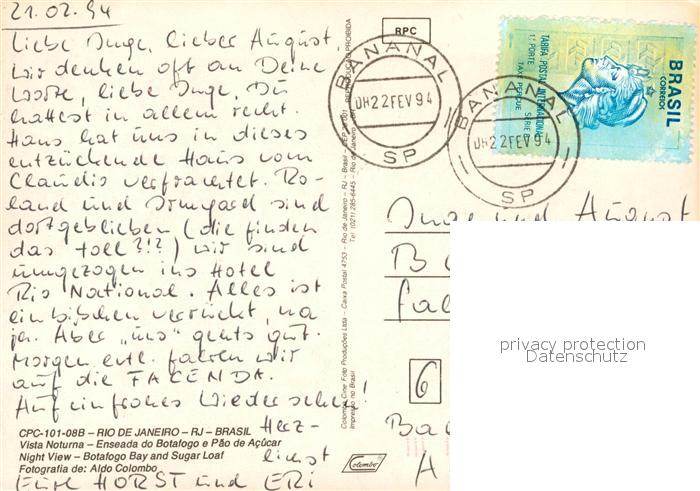 21.02.94
Liebe Inge, lieber August.
Wir denken oft an Deine
Worte, liebe Inge, Du
hattest in allem recht.
Hans hat uns in dieses
entzückende Haus vom
Claudio verfrachtet. Ro-
land und Irmgard sind
dortgeblieben (die finden
das toll?!?) wir sind
umgezogen ins Hotel
Rio National. Alles ist
ein bißchen verrückt, na
ja. Aber „uns“ gehts gut.
Morgen evtl. fahren wir
auf die FACENDA.
Auf ein frohes Wiedersehen!
Herz-
lichst
Eure HORST und ERI
CPC-101-08B – RIO DE JANEIRO – RJ – BRASIL
Vista Noturna – Enseada do Botafogo e Pão de Açúcar
Night View – Botafogo Bay and Sugar Loaf
Fotografia de: Aldo Colombo
Colombo Cine Foto Produções Ltda – Caixa Postal 4753 – Rio de Janeiro – RJ – Brasil
Impresso no Brasil
Tel: (021) 285-6445 – Rio de Janeiro
REPRODUÇÃO PROIBIDA
Colombo
RPC
BANANAL
DH 22 FEV 94
SP
BANANAL
DH 22 FEV 94
SP
BRASIL
CORREIOS
TARIFA POSTAL INTERNACIONAL
1º PORTE
TAXE PERÇUE SÉRIE
Inge und August
6
Ba
A
privacy protection
Datenschutz